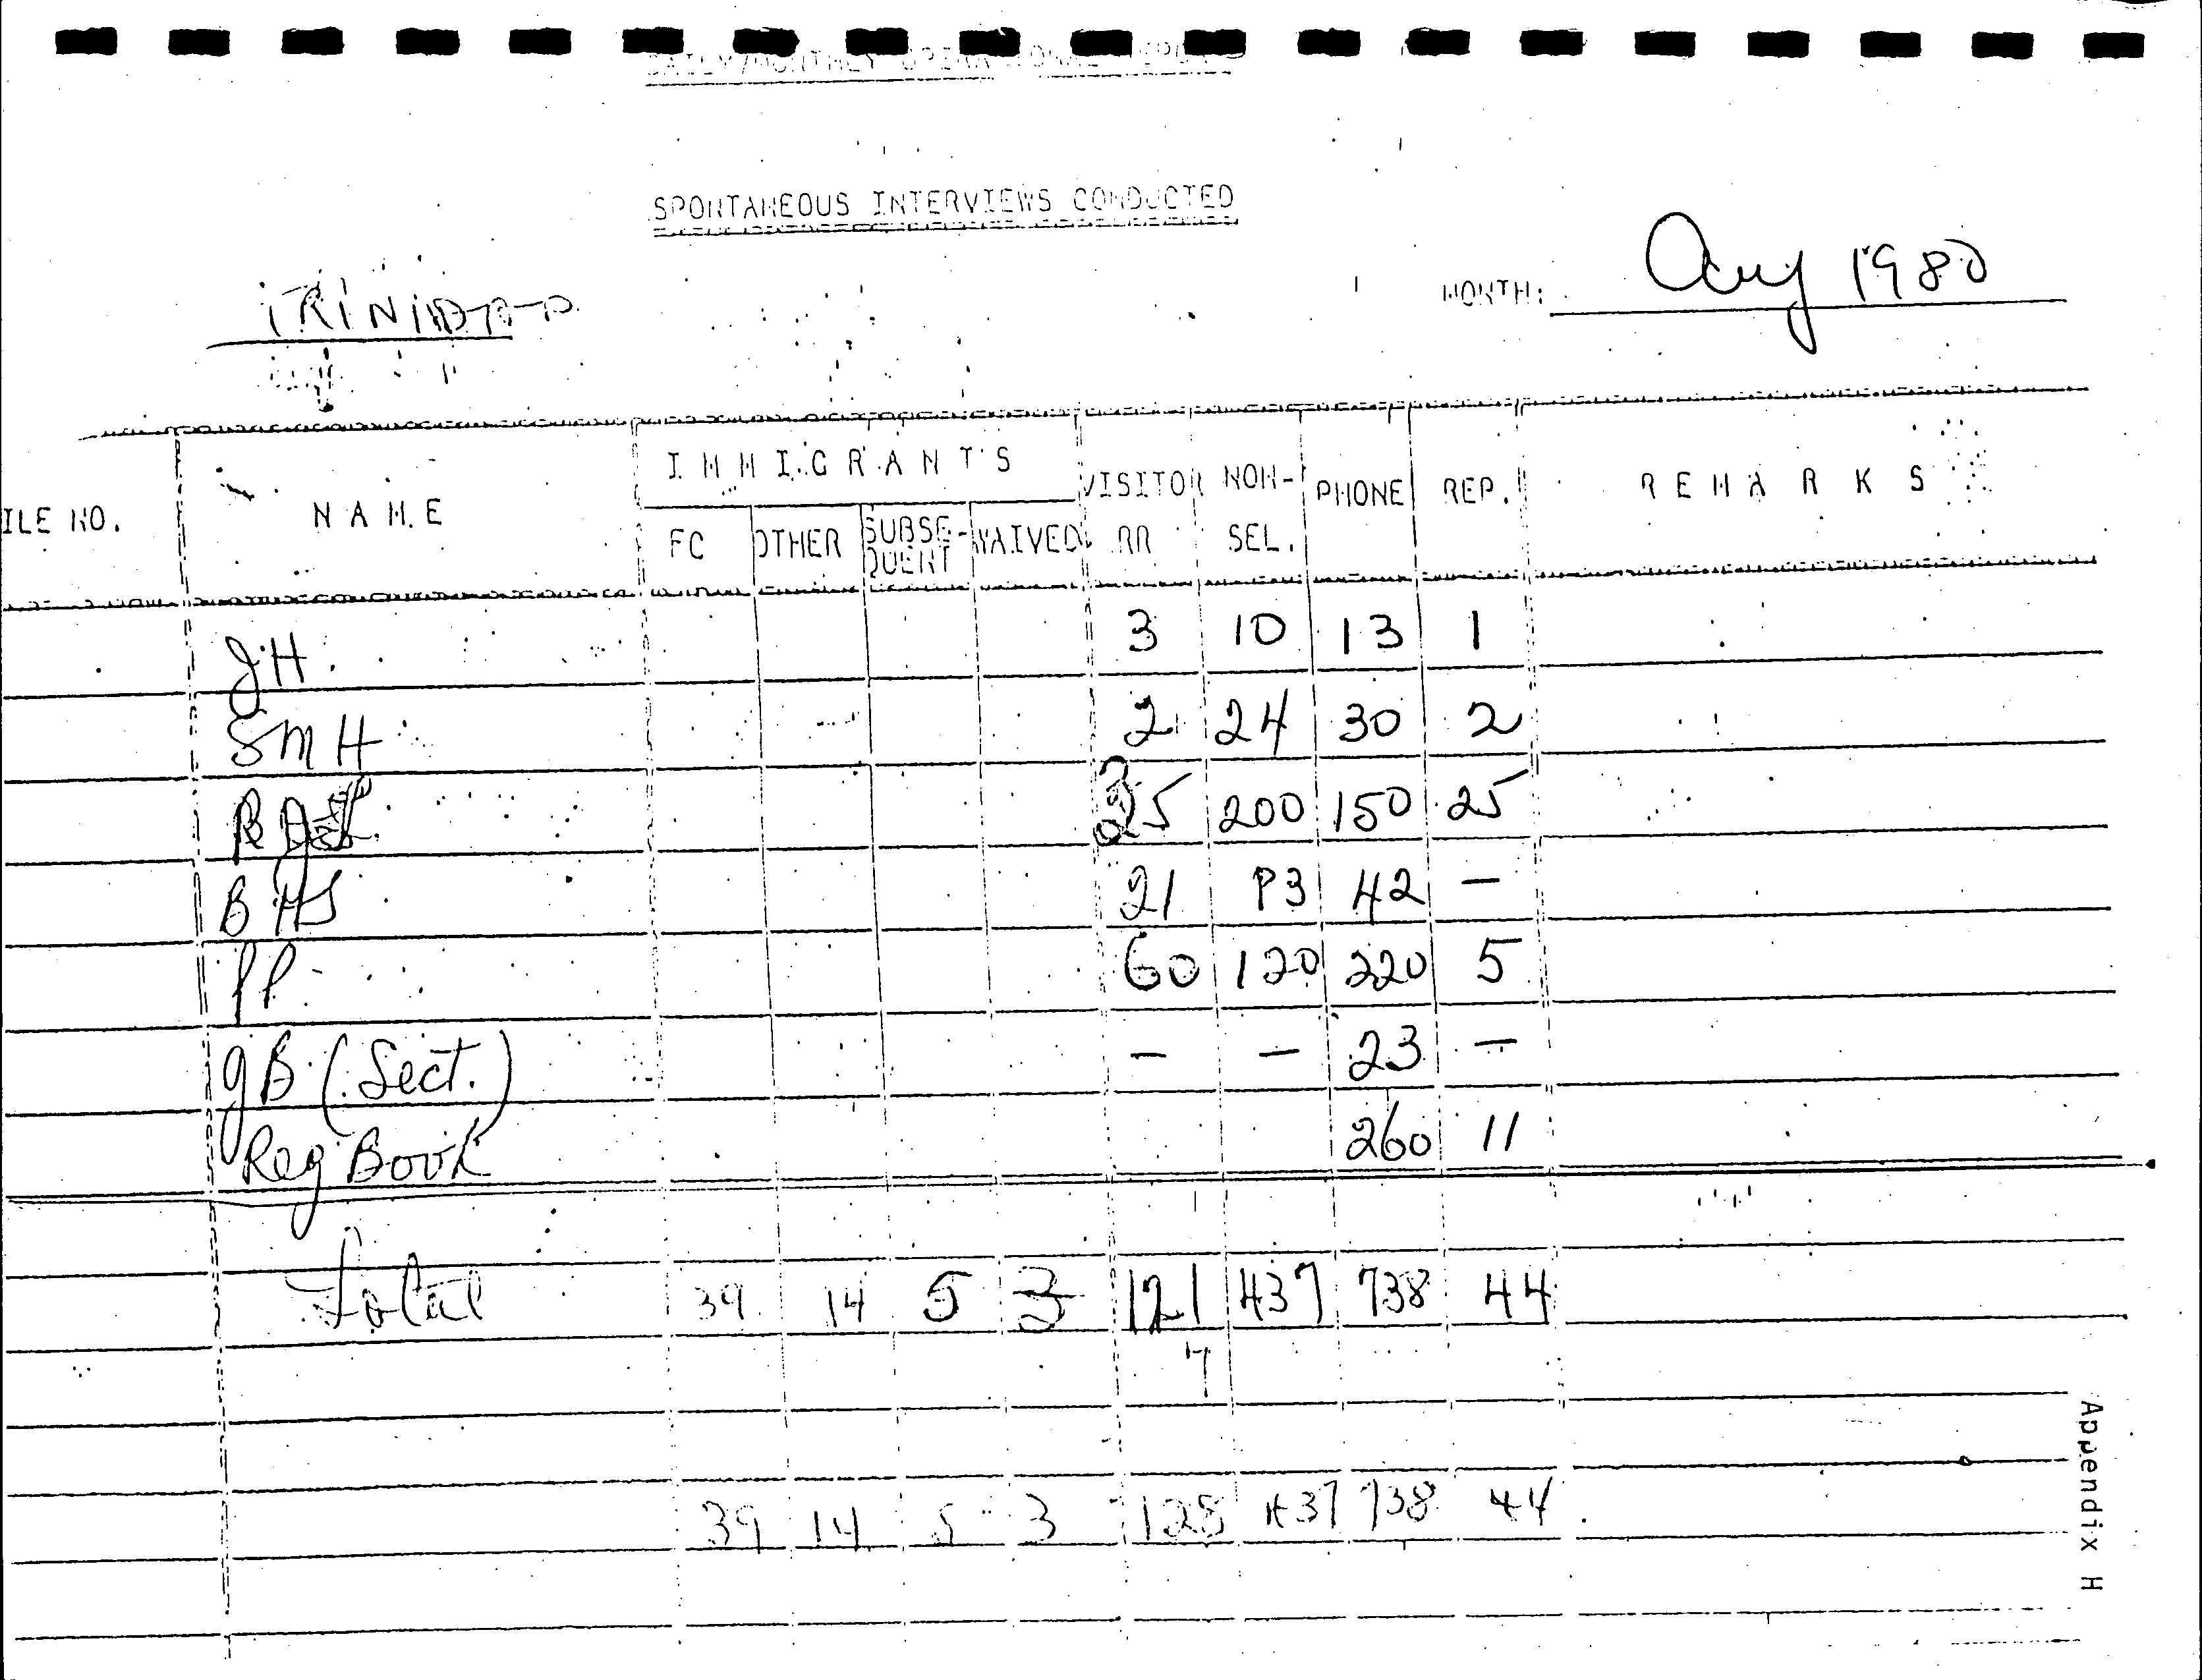 DAILY/MONTHLY OPERATIONAL REPORT
SPONTANEOUS INTERVIEWS CONDUCTED
TRINIDAD
MONTH: Aug 1980
ILE NO. NAME IMMIGRANTS VISITOR NON- PHONE REP. REMARKS
FC OTHER SUBSE-QUENT WAIVED RR SEL.
JH. 3 10 13 1
SMH 2 24 30 2
25 200 150 25
BHS 21 83 42 -
60 120 220 5
JB (Sect.) - - 23 -
Reg Book 260 11
Total 39 14 5 3 121 437 738 44
7
39 14 5 3 128 437 738 44
Appendix H